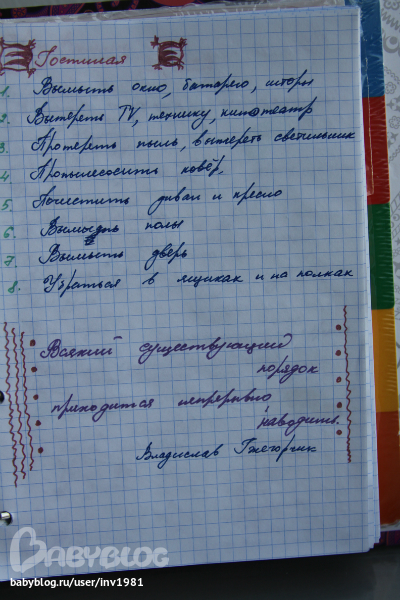 Гостиная
1. Вымыть окно, батарею, шторы
2. Вытереть TV, технику, кинотеатр
3. Протереть пыль, вытереть светильник
4. Пропылесосить ковёр,
5. Почистить диван и кресло
6. Вымыть полы
7. Вымыть дверь
8. Убраться в ящиках и на полках
Всякий существующий
порядок
приходится непрерывно
наводить.
Владислав Гжегорчик
BABYBLOG
babyblog.ru/user/inv1981